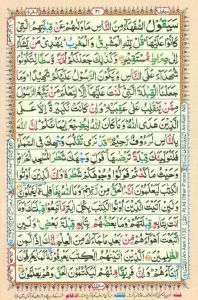 سَيَقُوْلُ السُّفَهَآءُ مِنَ النَّاسِ مَا وَلّٰىهُمْ عَنْ قِبْلَتِهِمُ الَّتِيْ
كَانُوْا عَلَيْهَا ؕ قُلْ لِّلّٰهِ الْمَشْرِقُ وَالْمَغْرِبُ ؕ يَهْدِيْ مَنْ يَّشَآءُ
اِلٰى صِرَاطٍ مُّسْتَقِيْمٍ وَكَذٰلِكَ جَعَلْنٰكُمْ اُمَّةً وَّسَطًا لِّتَكُوْنُوْا
شُهَدَآءَ عَلَى النَّاسِ وَيَكُوْنَ الرَّسُوْلُ عَلَيْكُمْ شَهِيْدًا ؕ وَمَا
جَعَلْنَا الْقِبْلَةَ الَّتِيْ كُنْتَ عَلَيْهَا اِلَّا لِنَعْلَمَ مَنْ يَّتَّبِعُ الرَّسُوْلَ
مِمَّنْ يَّنْقَلِبُ عَلٰى عَقِبَيْهِ ؕ وَاِنْ كَانَتْ لَكَبِيْرَةً اِلَّا عَلَى
الَّذِيْنَ هَدَى اللّٰهُ ؕ وَمَا كَانَ اللّٰهُ لِيُضِيْعَ اِيْمَانَكُمْ ؕ اِنَّ اللّٰهَ
بِالنَّاسِ لَرَءُوْفٌ رَّحِيْمٌ قَدْ نَرٰى تَقَلُّبَ وَجْهِكَ فِي السَّمَآءِ
فَلَنُوَلِّيَنَّكَ قِبْلَةً تَرْضٰىهَا فَوَلِّ وَجْهَكَ شَطْرَ الْمَسْجِدِ الْحَرَامِ
وَحَيْثُ مَا كُنْتُمْ فَوَلُّوْا وُجُوْهَكُمْ شَطْرَهٗ ؕ وَاِنَّ الَّذِيْنَ اُوْتُوا
الْكِتٰبَ لَيَعْلَمُوْنَ اَنَّهُ الْحَقُّ مِنْ رَّبِّهِمْ ؕ وَمَا اللّٰهُ بِغَافِلٍ عَمَّا
يَعْمَلُوْنَ وَلَئِنْ اَتَيْتَ الَّذِيْنَ اُوْتُوا الْكِتٰبَ بِكُلِّ اٰيَةٍ مَّا
تَبِعُوْا قِبْلَتَكَ وَمَآ اَنْتَ بِتَابِعٍ قِبْلَتَهُمْ وَمَا بَعْضُهُمْ بِتَابِعٍ قِبْلَةَ بَعْضٍ ؕ وَلَئِنِ
اتَّبَعْتَ اَهْوَآءَهُمْ مِّنْۢ بَعْدِ مَا جَآءَكَ مِنَ الْعِلْمِ اِنَّكَ اِذًا لَّمِنَ
الظّٰلِمِيْنَ اَلَّذِيْنَ اٰتَيْنٰهُمُ الْكِتٰبَ يَعْرِفُوْنَهٗ كَمَا يَعْرِفُوْنَ
اَبْنَآءَهُمْ ؕ وَاِنَّ فَرِيْقًا مِّنْهُمْ لَيَكْتُمُوْنَ الْحَقَّ وَهُمْ يَعْلَمُوْنَ